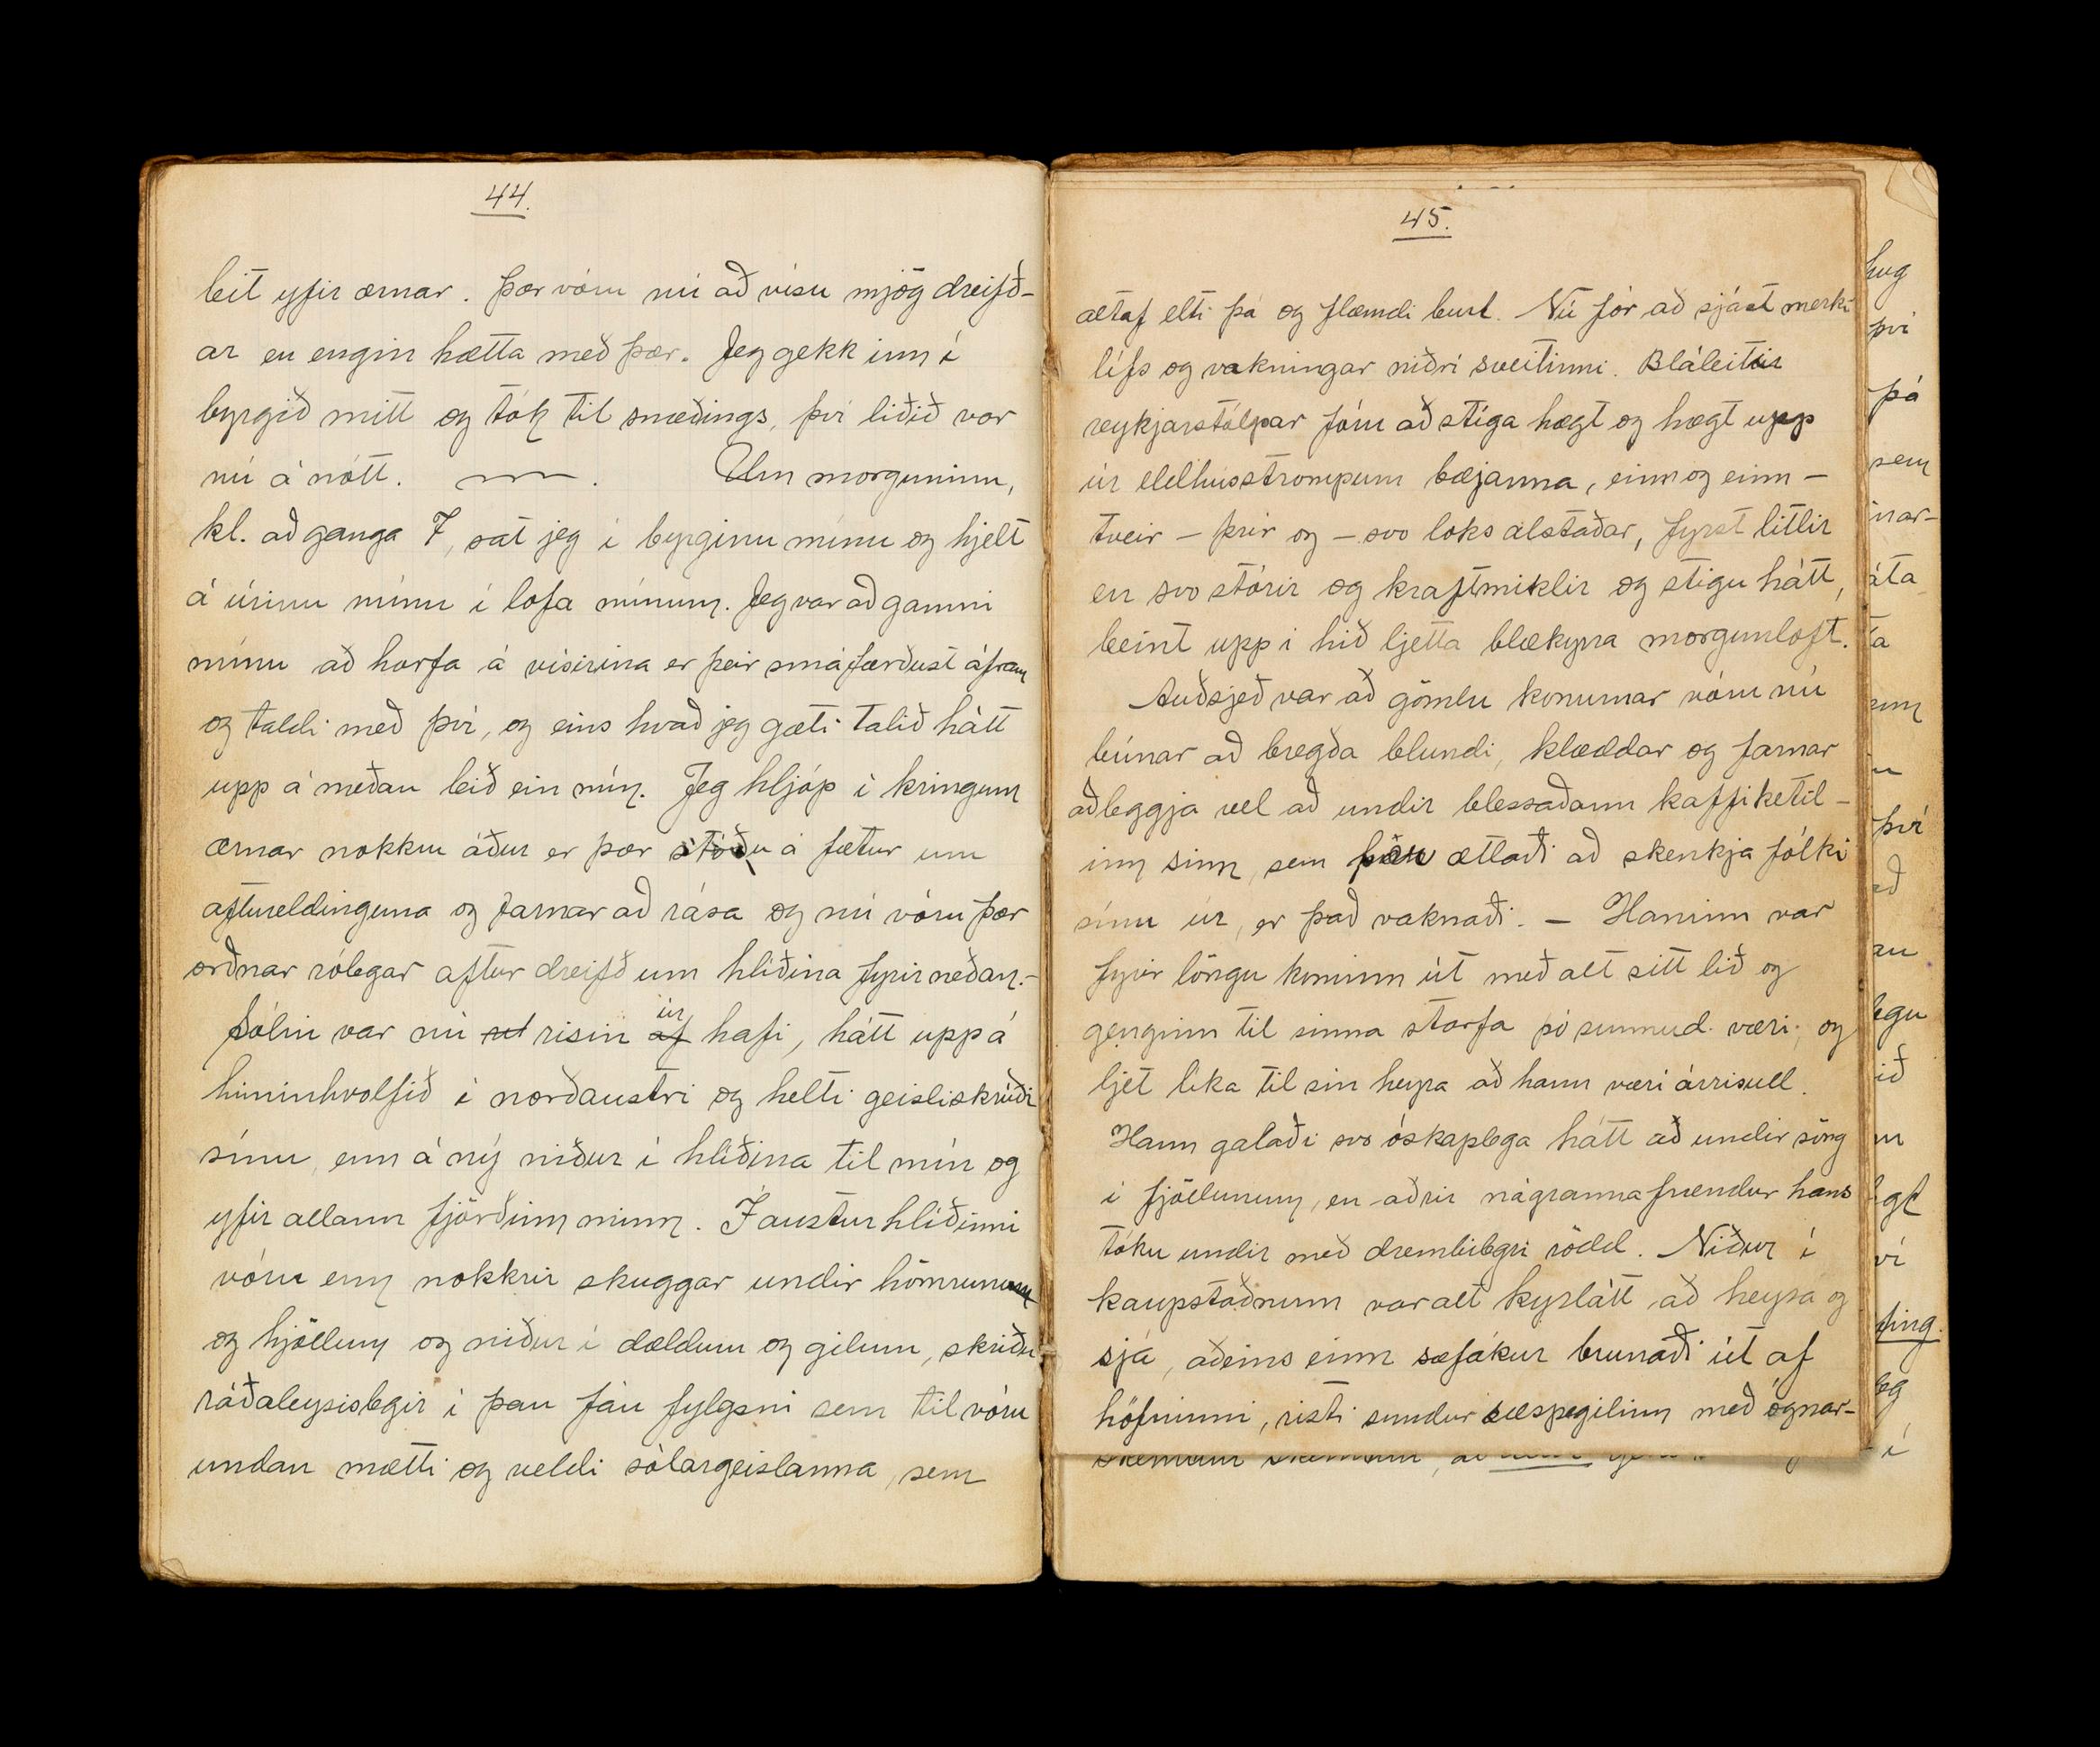 44.
leit yfir ærnar. Þær vóru nú að vísu mjög dreifð-
ar en engin hætta með þær. Jeg gekk inn í
byrgið mitt og tók til snæðings, því liðið var
nú á nótt. —. Um morguninn,
kl. að ganga 7, sat jeg í byrginu mínu og hjelt
á úrinu mínu í lofa mínum. Jeg var að gamni
mínu að horfa á vísirina er þeir smáfærðust áfram
og taldi með því, og eins hvað jeg gæti talið hátt
upp á meðan leið ein mín. Jeg hljóp í kringum
ærnar nokkru áður er þær stóðu á fætur um
aftureldinguna og farnar að rása og nú vóru þær
orðnar rólegar aftur dreifð um hlíðina fyrir neðan.-
Sólin var nú risin af úr hafi, hátt upp á
himinhvolfið í norðaustri og helti geisliskrúði
sínu, enn á ný niður í hlíðina til mín og
yfir allann fjörðinn minn. Í austurhlíðinni
vóru enn nokkrir skuggar undir hömrunum
og hjöllum og niður í dældum og gilum, skriðu
ráðaleysislegir í þau fáu fylgsni sem til vóru
undan mætti og veldi sólargeislanna, sem
45.
ætaf elti þá og flæmdi burt. Nú fór að sjást merki
lífs og vakningar niðrí sveitinni. Bláleitir
reykjarstólpar fóru að stíga hægt og hægt upp
úr eldhússtrompum bæjanna, einn og einn —
tveir — þrír og — svo loks alstaðar, fyrst litlir
en svo stórir og kraftmiklir og stigu hátt,
beint upp í hið ljetta blækyrra morgunloft.
Auðsjeð var að gömlu konurnar vóru nú
búnar að bregða blundi, klæddar og farnar
að leggja vel að undir blessaðann kaffiketil-
inn sinn, sem þær ætlaði að skenkja fólki
sínu úr, er það vaknaði. — Haninn var
fyrir löngu kominn út með alt sitt lið og
genginn til sinna starfa þó sunnud. væri, og
ljet líka til sín heyra að hann væri árrisull.
Hann galaði svo óskaplega hátt að undir söng
í fjöllunum, en aðrir nágrannafrændur hans
tóku undir með drembilegri rödd. Niður í
kaupstaðnum var alt kyrlátt að heyra og
sjá, aðeins einn sæfákur brunaði út af
höfninni, risti sundur sæspegilinn með ógnar-
hug
því
þá
sem
nar-
áta
ta
því
að
legu
ið
ví
í